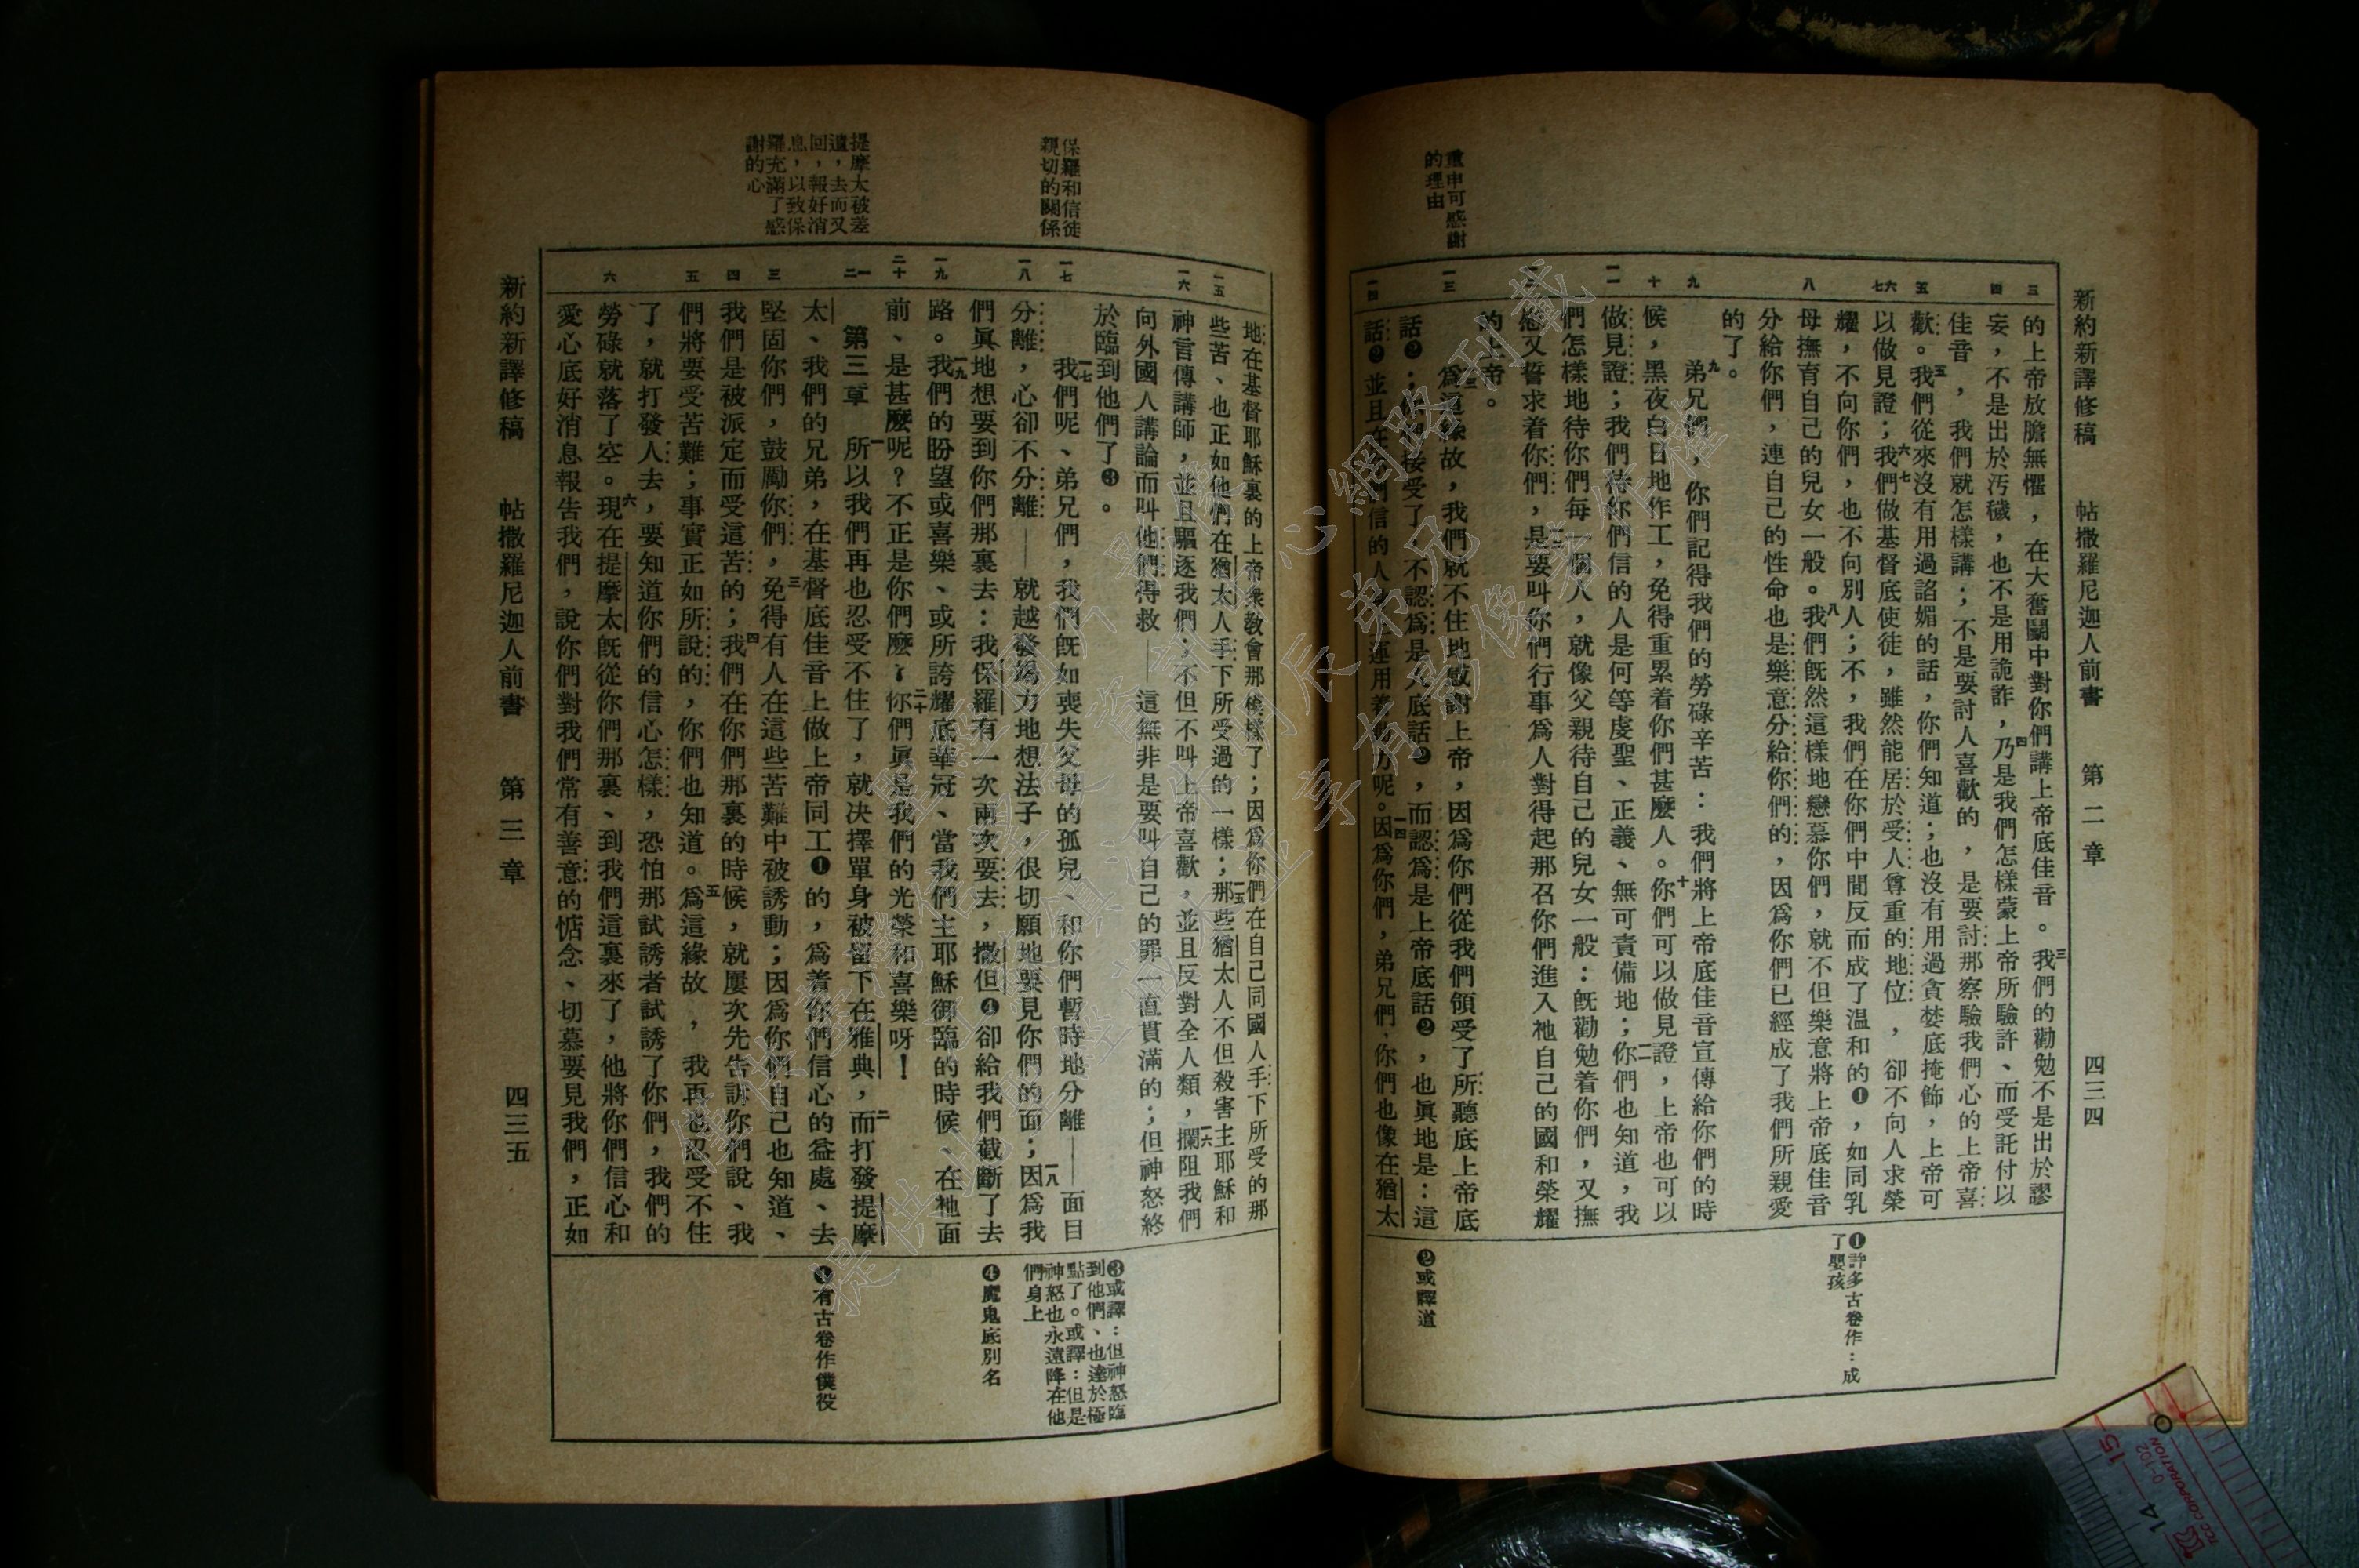 新約新譯修稿　帖撒羅尼迦人前書　第二章　四三四
重申可感謝
的理由
三
四
五
六七
八
九
十
一一
一二
一三
一四
的上帝放膽無懼，在大奮鬭中對你們講上帝底佳音。三我們的勸勉不是出於謬
妄，不是出於汚穢，也不是用詭詐，四乃是我們怎樣蒙上帝所驗許、而受託付以
佳音，我們就怎樣講；不是要討人喜歡的，是要討那察驗我們心的上帝喜
歡。五我們從來沒有用過諂媚的話，你們知道；也沒有用過貪婪底掩飾，上帝可
以做見證；六七我們做基督底使徒，雖然能居於受人尊重的地位，卻不向人求榮
耀，不向你們，也不向別人；不，我們在你們中間反而成了温和的❶，如同乳
母撫育自己的兒女一般。八我們旣然這樣地戀慕你們，就不但樂意將上帝底佳音
分給你們，連自己的性命也是樂意分給你們的，因爲你們已經成了我們所親愛
的了。
九弟兄們，你們記得我們的勞碌辛苦：我們將上帝底佳音宣傳給你們的時
候，黑夜白日地作工，免得重累着你們甚麽人。十你們可以做見證，上帝也可以
做見證；我們待你們信的人是何等虔聖、正義、無可責備地；一一你們也知道，我
們怎樣地待你們每一個人，就像父親待自己的兒女一般：旣勸勉着你們，又撫
慰又誓求着你們，一二是要叫你們行事爲人對得起那召你們進入祂自己的國和榮耀
的上帝。
一三爲這緣故，我們就不住地感謝上帝，因爲你們從我們領受了所聽底上帝底
話❷；你們接受了、不認爲是人底話❷，而認爲是上帝底話❷，也眞地是：這
話❷並且在你們信的人 運用着 力呢。一四因爲你們，弟兄們，你們也像在猶太
❶許多古卷作：成
了嬰孩
❷或譯道
新約新譯修稿　帖撒羅尼迦人前書　第三章　四三五
保羅和信徒
親切的關係
提摩太被差
遣，去而又
回，報好消
息，以致保
羅充滿了感
謝的心
一五
一六
一七
一八
一九
二十
一二
三
四
五
六
地在基督耶穌裏的上帝衆教會那傻樣了；因爲你們在自己同國人手下所受的那
些苦、也正如他們在猶太人手下所受過的一樣；一五那些猶太人不但殺害主耶穌和
神言傳講師，並且驅逐我們；不但不叫上帝喜歡，並且反對全人類，一六攔阻我們
向外國人講論而叫他們得救——這無非是要叫自己的罪一直貫滿的；但神怒終
於臨到他們了❸。
一七我們呢、弟兄們，我們旣如喪失父母的孤兒、和你們暫時地分離——面目
分離，心卻不分離——就越發竭力地想法子，很切願地要見你們的面；一八因爲我
們眞地想要到你們那裏去：我保羅有一次兩次要去，撒但❹卻給我們截斷了去
路。一九我們的盼望或喜樂、或所誇耀底華冠、當我們主耶穌御臨的時候、在祂面
前、是甚麽呢？不正是你們麽？二十你們眞是我們的光榮和喜樂呀！
第三章　一所以我們再也忍受不住了，就决擇單身被留下在雅典，二而打發提摩
太、我們的兄弟，在基督底佳音上做上帝同工❶的，爲着你們信心的益處、去
堅固你們，鼓勵你們，三免得有人在這些苦難中被誘動；因爲你們自己也知道、
我們是被派定而受這苦的；四我們在你們那裏的時候，就屢次先告訴你們說、我
們將要受苦難；事實正如所說的，你們也知道。五爲這緣故，我再也忍受不住
了，就打發人去，要知道你們的信心怎樣，恐怕那試誘者試誘了你們，我們的
勞碌就落了空。六現在提摩太旣從你們那裏、到我們這裏來了，他將你們信心和
愛心底好消息報告我們，說你們對我們常有善意的惦念、切慕要見我們，正如
❸或譯：但神怒臨
到他們、也達於極
點了。或譯：但是
神怒也永遠降在他
們身上
❹魔鬼底別名
❶有古卷作僕役